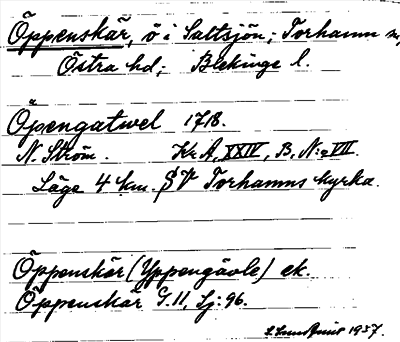 Öppenskär, ö i Saltsjön; Torhamn s,
Östra hd; Blekinge l.
Öpengatwel 1718.
N. Ström. Kr. A, XXIV, B, N:o VII.
Läge 4 km. SV Torhamns kyrka.
Öppenskär (Yppengävle) ek.
Öppenskär G.11, Lj: 96.
1937.